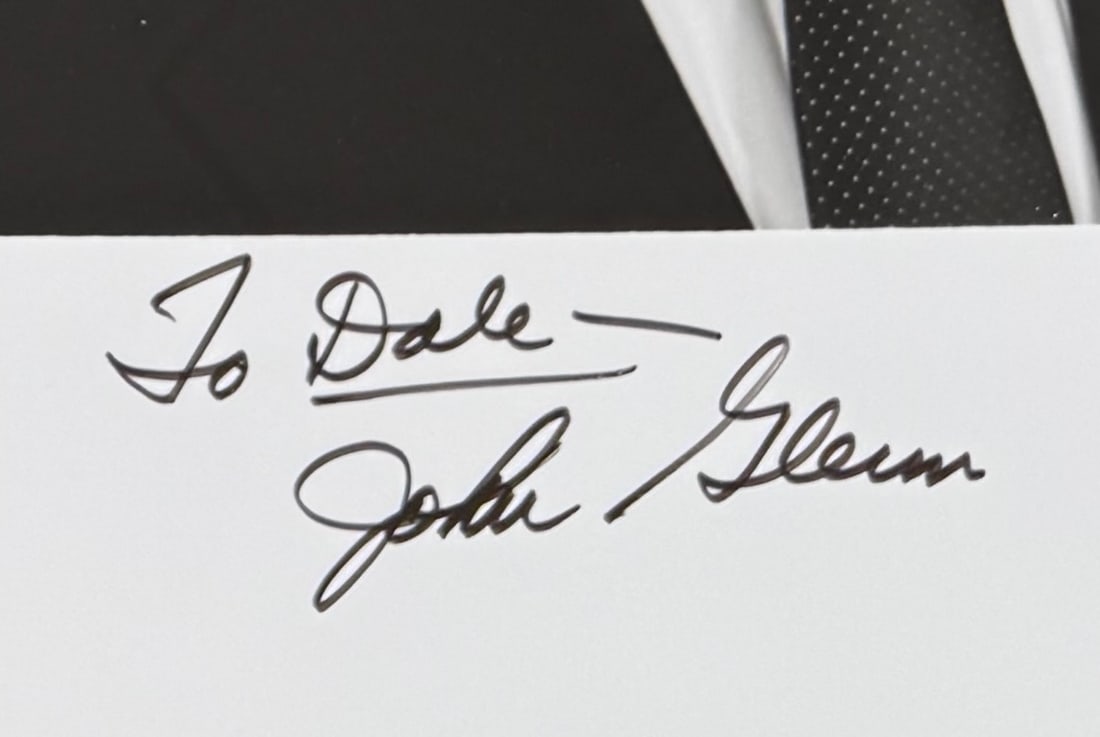 To Dale —
John Glenn